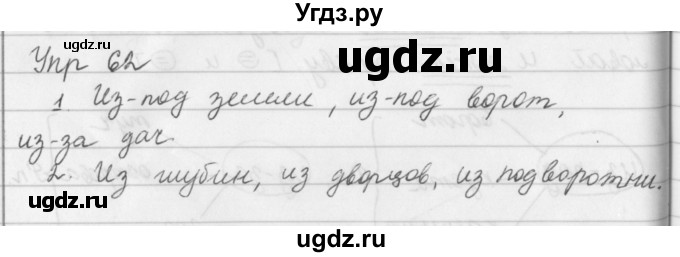 Угдз.ру
Упр 62
ugdz.ru
ugdz.ru
1. Из-под земли, из-под ворот,
из-за дач.
2. Из глубин, из дворцов, из подворотни.
ugdz.ru
ugdz.ru